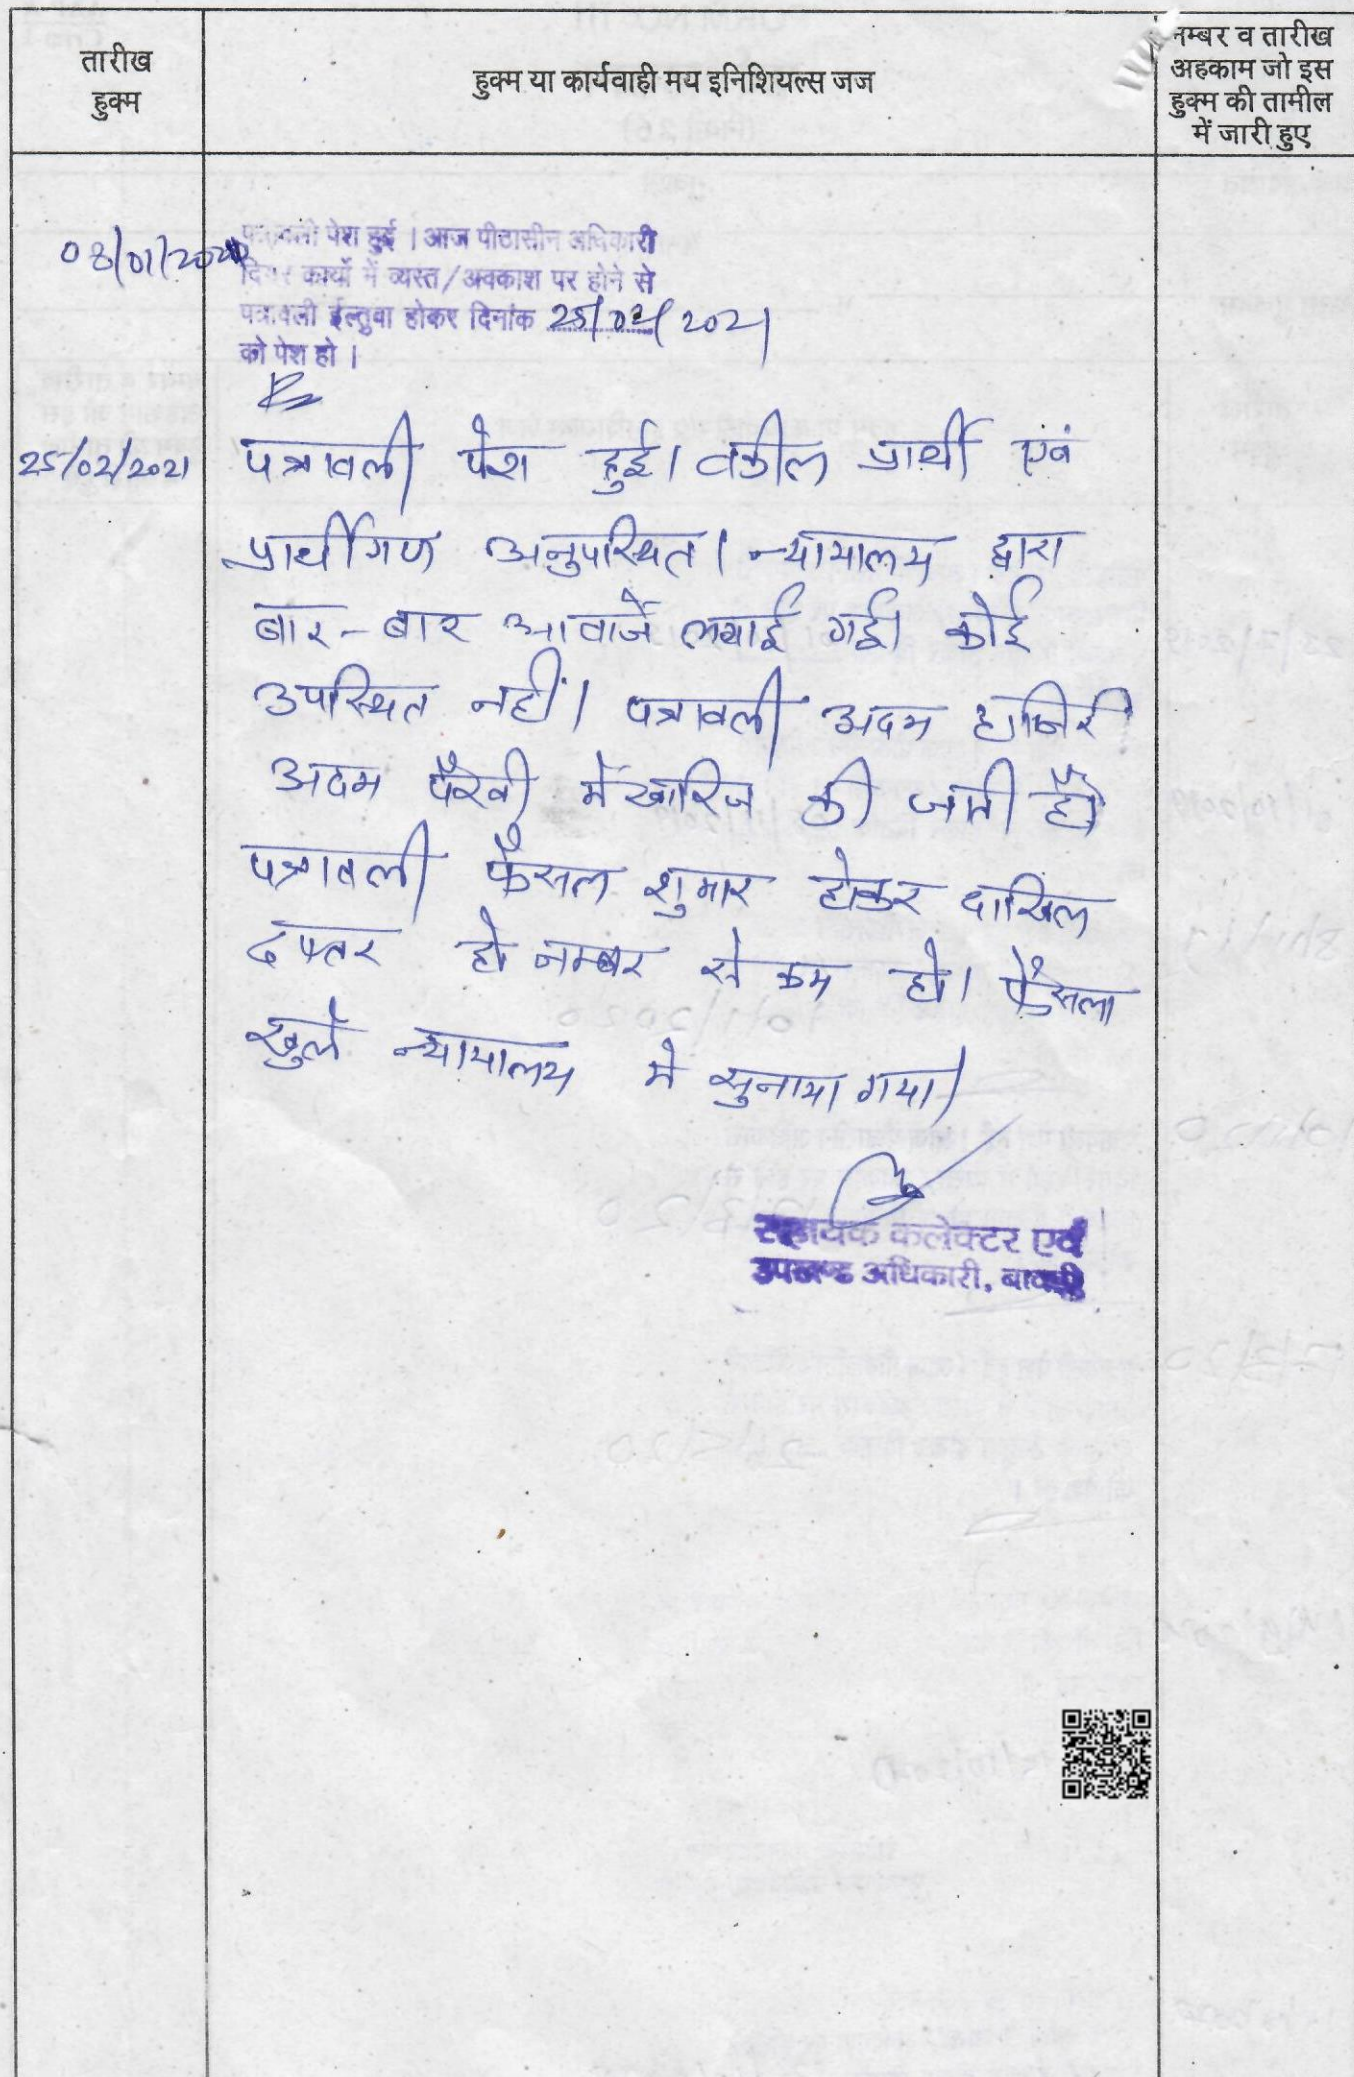 तारीख
हुक्म
हुक्म या कार्यवाही मय इनिशियल्स जज
नम्बर व तारीख
अहकाम जो इस
हुक्म की तामील
में जारी हुए
08/01/
पत्रावली पेश हुई । आज पीठासीन अधिकारी
दिगर कार्यों में व्यस्त/अवकाश पर होने से
पत्रावली ईल्तुवा होकर दिनांक 25/02/2021
को पेश हो ।
25/02/2021
पत्रावली पेश हुई। वकील प्रार्थी एवं
प्रार्थीगण अनुपस्थित। न्यायालय द्वारा
बार-बार आवाजें लगाई गई। कोई
उपस्थित नहीं। पत्रावली अदम हाजिरी
अदम पैरवी में खारिज की जाती है।
पत्रावली फैसल शुमार होकर दाखिल
दफ्तर हो नम्बर से कम हो। फैसला
खुले न्यायालय में सुनाया गया।
सहायक कलेक्टर एवं
उपखण्ड अधिकारी,